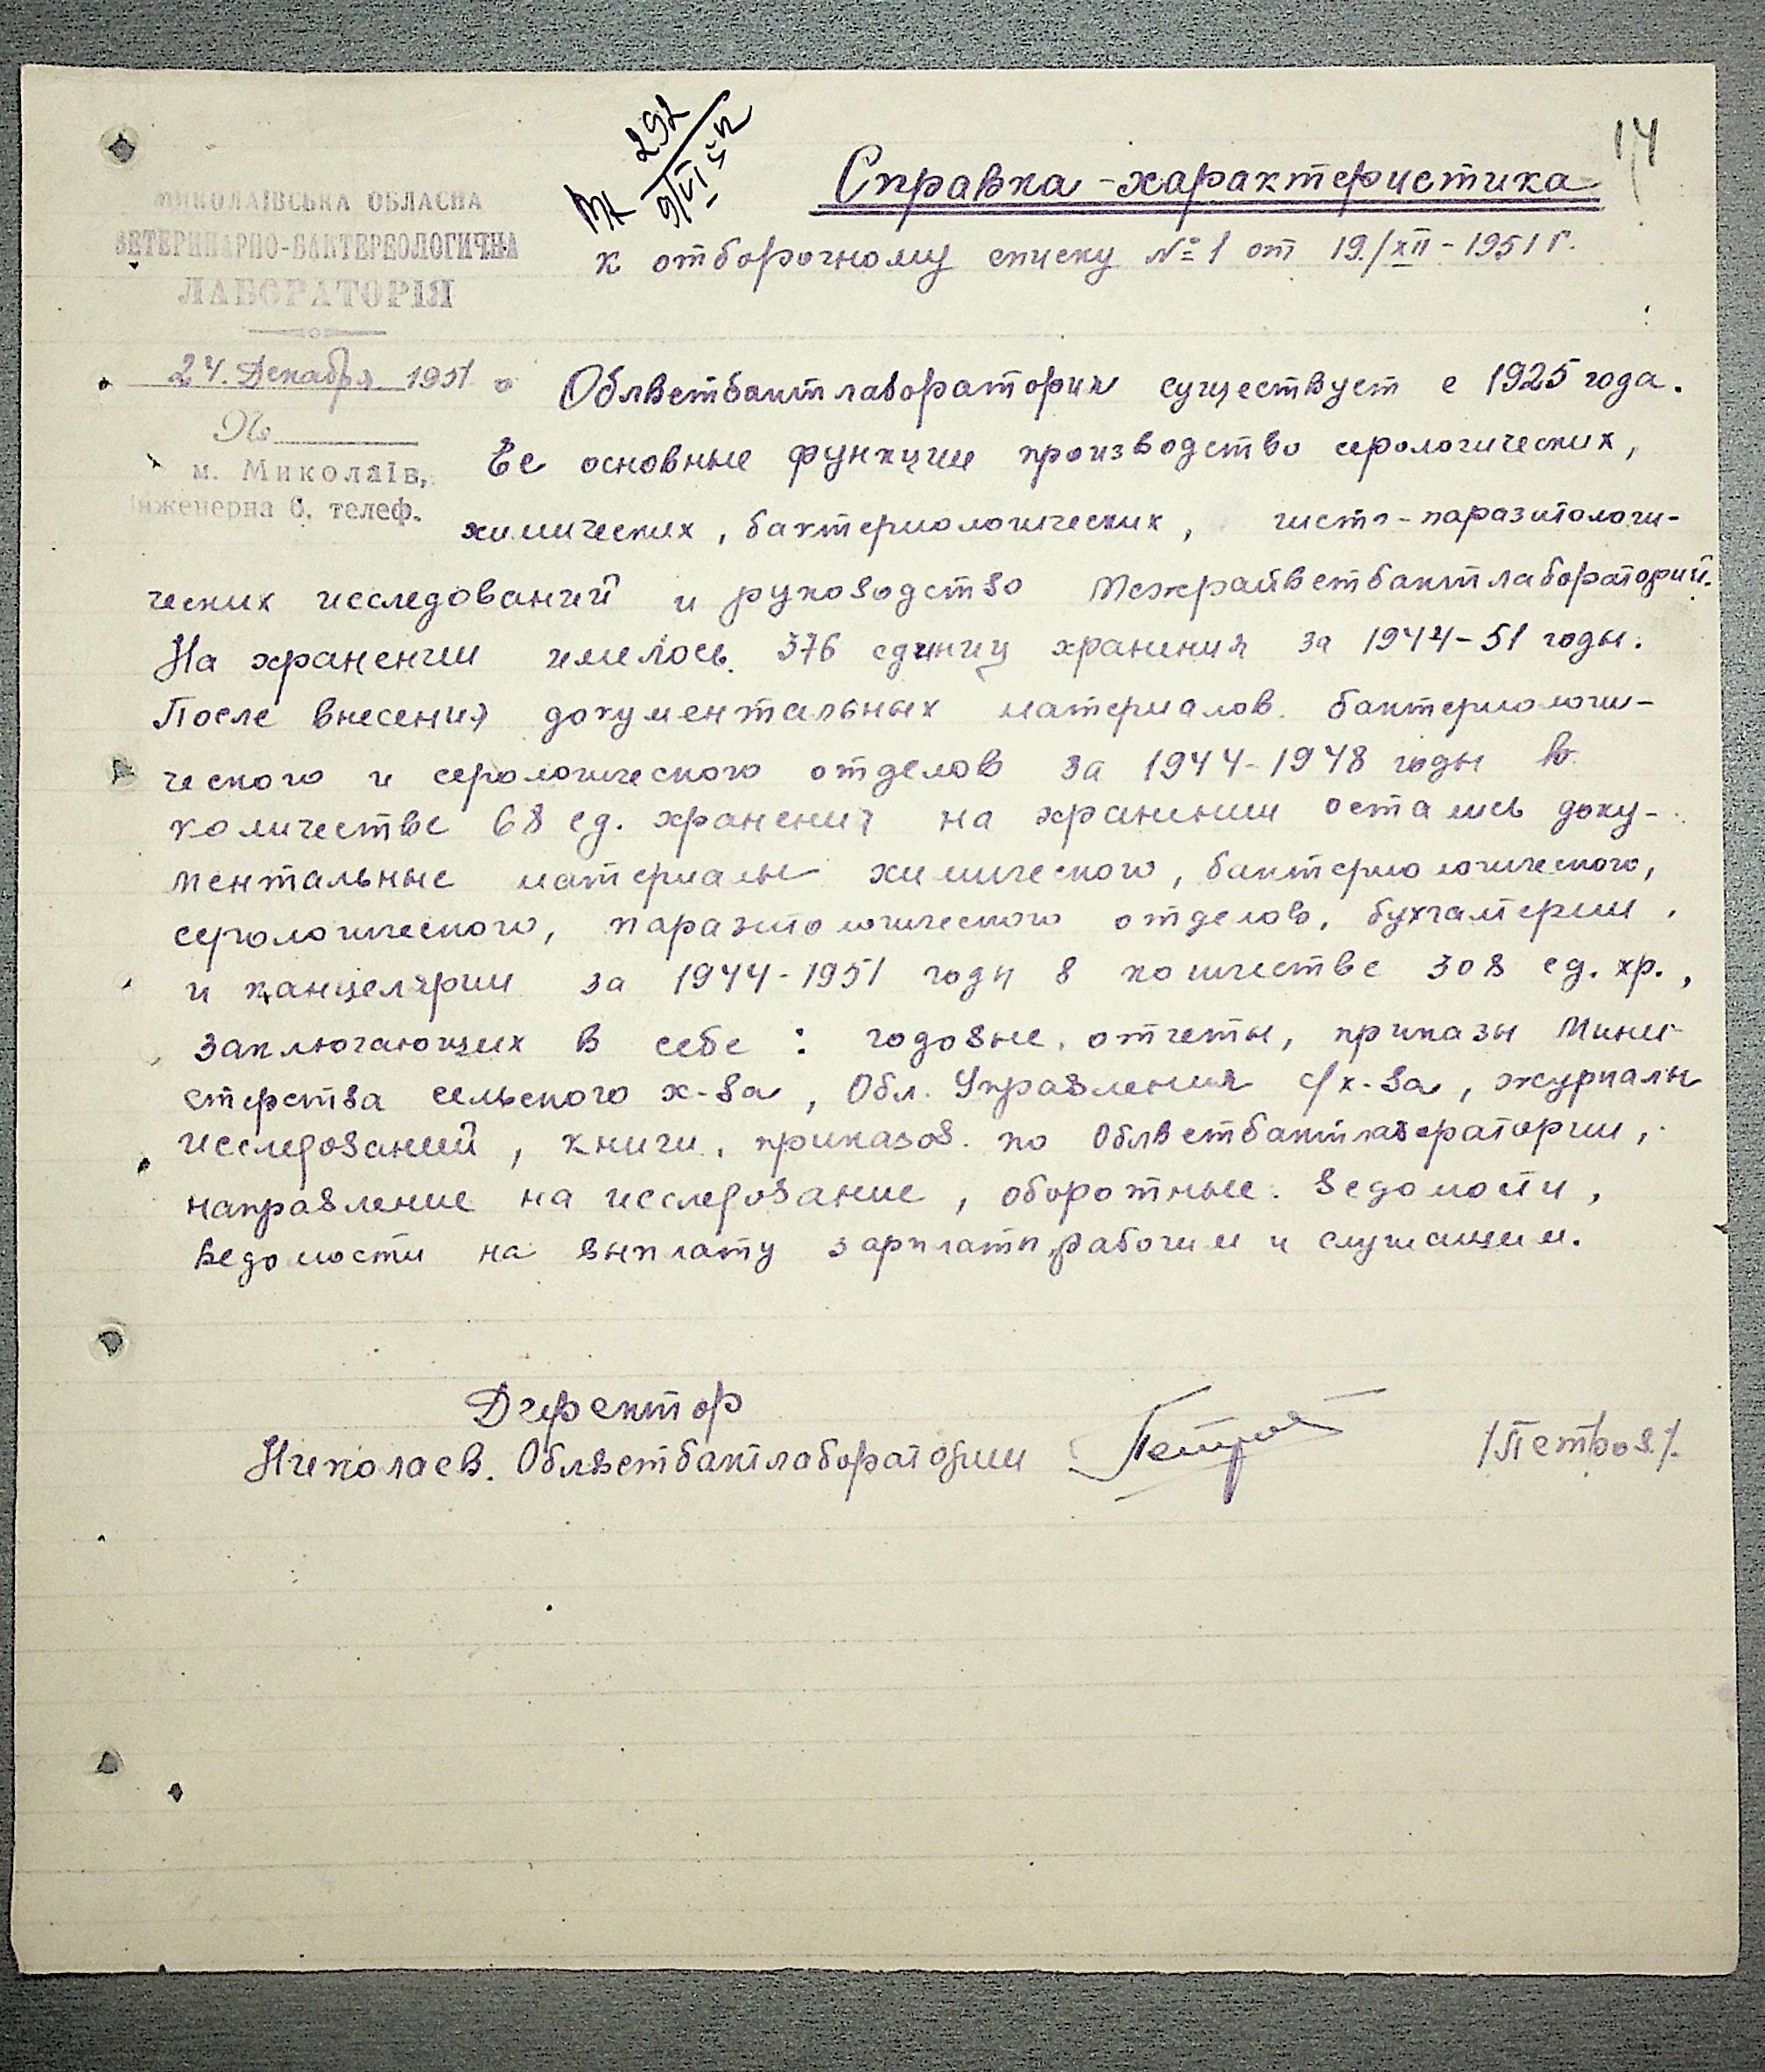 14
292
9/VI 52
Справка-характеристика
к отборочному списку № 1 от 19/XII-1951 г.
МИКОЛАЇВСЬКА ОБЛАСНА
ВЕТЕРИНАРНО-БАКТЕРЕОЛОГИЧНА
ЛАБОРАТОРІЯ
24. Декабря 1951
№
м. Миколаїв,
Інженерна 6, телеф.
Облветбактлаборатория существует с 1925 года.
Ее основные функции производство серологических,
химических, бактериологических, гисто-паразитологи-
ческих исследований и руководство Межрайветбактлабораторий.
На хранении имелось 376 единиц хранения за 1944-51 годы.
После внесения документальных материалов бактериологи-
ческого и серологического отделов за 1944-1948 годы в
количестве 68 ед. хранения на хранении остались доку-
ментальные материалы химического, бактериологического,
серологического, паразитологического отделов, бухгалтерии,
и канцелярии за 1944-1951 годы в количестве 308 ед. хр.,
заключающих в себе: годовые отчеты, приказы Мини-
стерства сельского х-ва, Обл. Управления с/х-ва, журналы
исследований, книги приказов по Облветбактлаборатории,
направление на исследование, оборотные ведомости,
ведомости на выплату зарплаты рабочим и служащим.
Директор
Николаев. Облветбактлаборатории Петров /Петров/.